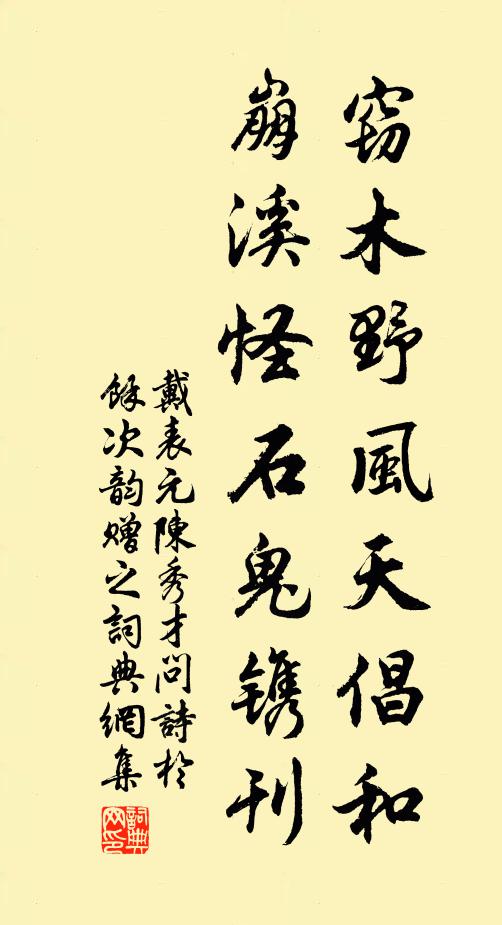 窃木野風天倡和
崩溪怪石鬼镌刊
戴表元陳秀才問詩於
餘次韵赠之詞典網集
詞典网印